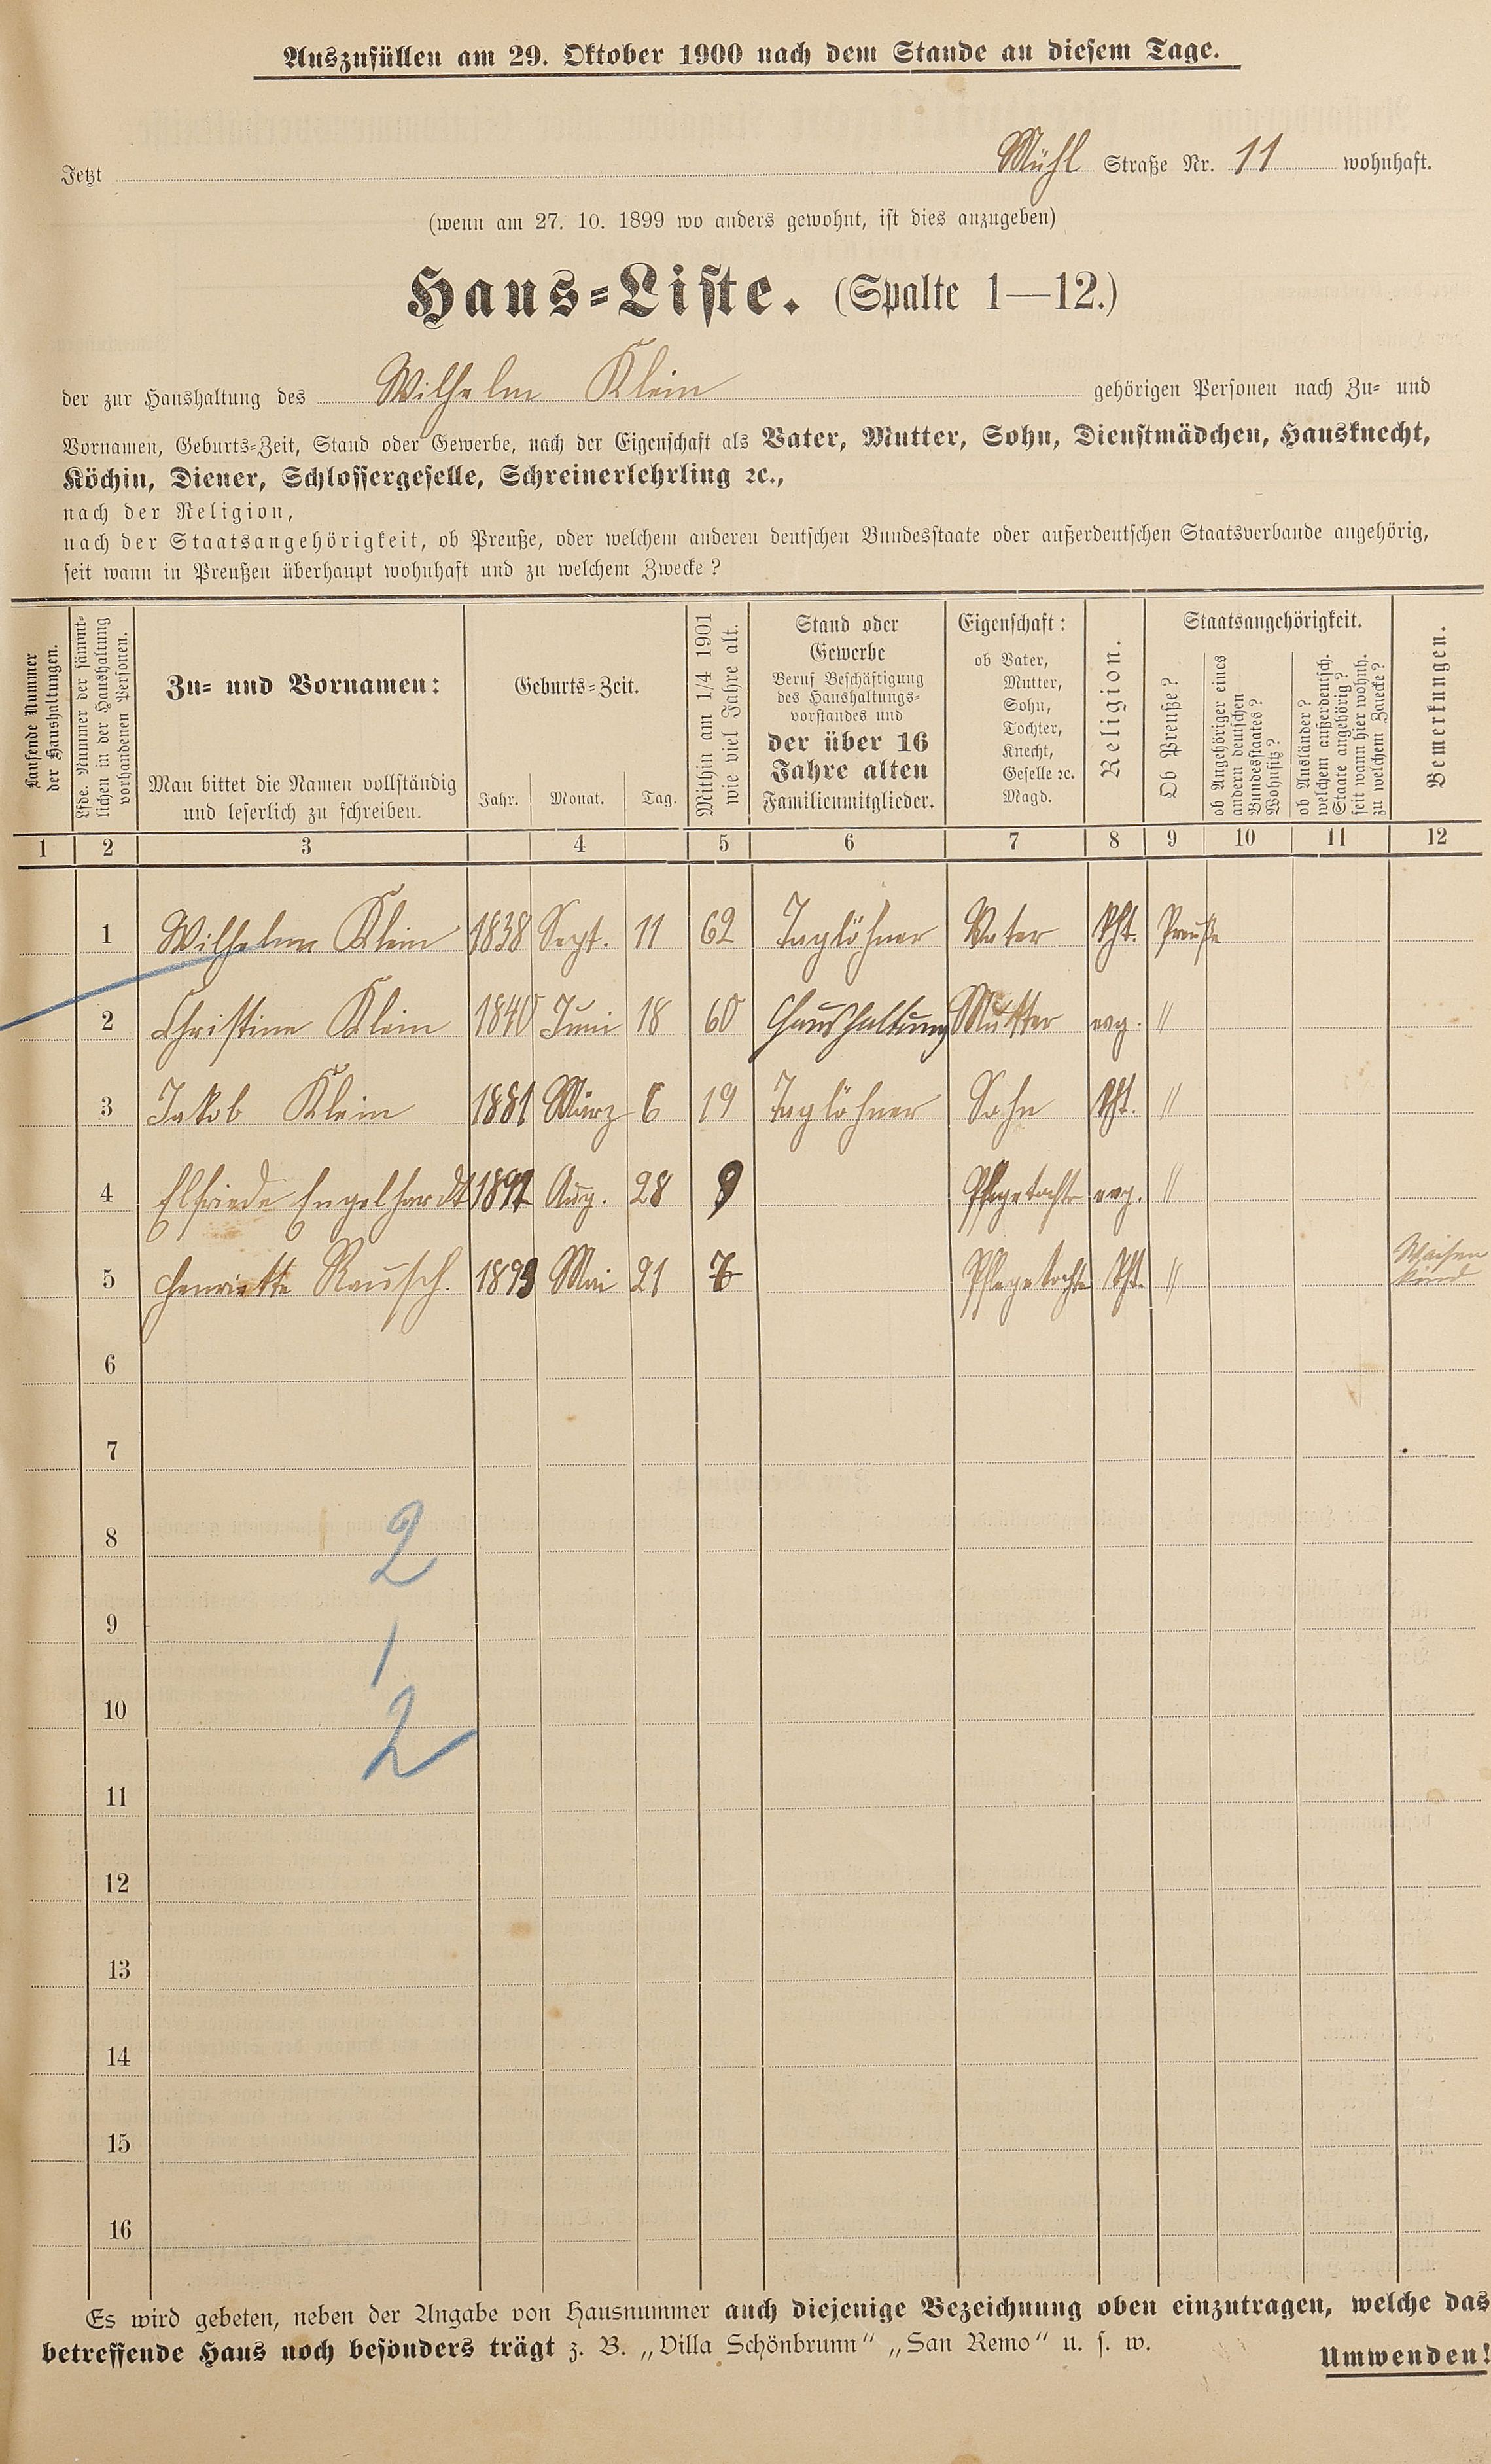 Auszufüllen am 29. Oktober 1900 nach dem Stande an diesem Tage.
Jetzt Mühl Straße Nr. 11 wohnhaft.
(wenn am 27. 10. 1899 wo anders gewohnt, ist dies anzugeben)
Haus-Liste. (Spalte 1—12.)
der zur Haushaltung des Wilhelm Klein gehörigen Personen nach Zu- und
Vornamen, Geburts-Zeit, Stand oder Gewerbe, nach der Eigenschaft als Vater, Mutter, Sohn, Dienstmädchen, Hausknecht,
Köchin, Diener, Schlossergeselle, Schreinerlehrling ꝛc.,
nach der Religion,
nach der Staatsangehörigkeit, ob Preuße, oder welchem anderen deutschen Bundesstaate oder außerdeutschen Staatsverbande angehörig,
seit wann in Preußen überhaupt wohnhaft und zu welchem Zwecke?
Laufende Nummer
der Haushaltungen.
Lfde. Nummer der sämmt-
lichen in der Haushaltung
vorhandenen Personen.
Zu- und Vornamen:
Man bittet die Namen vollständig
und leserlich zu schreiben.
Geburts-Zeit.
Jahr. Monat. Tag.
Mithin am 1/4 1901
wie viel Jahre alt.
Stand oder
Gewerbe
Beruf Beschäftigung
des Haushaltungs-
vorstandes und
der über 16
Jahre alten
Familienmitglieder.
Eigenschaft:
ob Vater,
Mutter,
Sohn,
Tochter,
Knecht,
Geselle ꝛc.
Magd.
Religion.
Staatsangehörigkeit.
Ob Preuße?
ob Angehöriger eines
andern deutschen
Bundesstaates?
Wohnsitz?
ob Ausländer?
welchem außerdeutsch.
Staate angehörig?
seit wann hier wohnh.
zu welchem Zwecke?
Bemerkungen.
1 2 3 4 5 6 7 8 9 10 11 12
1 Wilhelm Klein 1838 Sept. 11 62 Taglöhner Vater Kth. Preuße
2 Christine Klein 1840 Juni 18 60 Haushaltung Mutter evg. "
3 Jakob Klein 1881 März 6 19 Taglöhner Sohn Kth. "
4 Elfriede Engelhardt Aug. 28 9 Pflegetochter evg. "
5 Henriette Rausch. 1893 Mai 21 7 Pflegetochter Kth. " Waisen
kind
6
7
8
2
9
1
10
2
11
12
13
14
15
16
Es wird gebeten, neben der Angabe von Hausnummer auch diejenige Bezeichnung oben einzutragen, welche das
betreffende Haus noch besonders trägt z. B. „Villa Schönbrunn" „San Remo" u. s. w.
Umwenden!